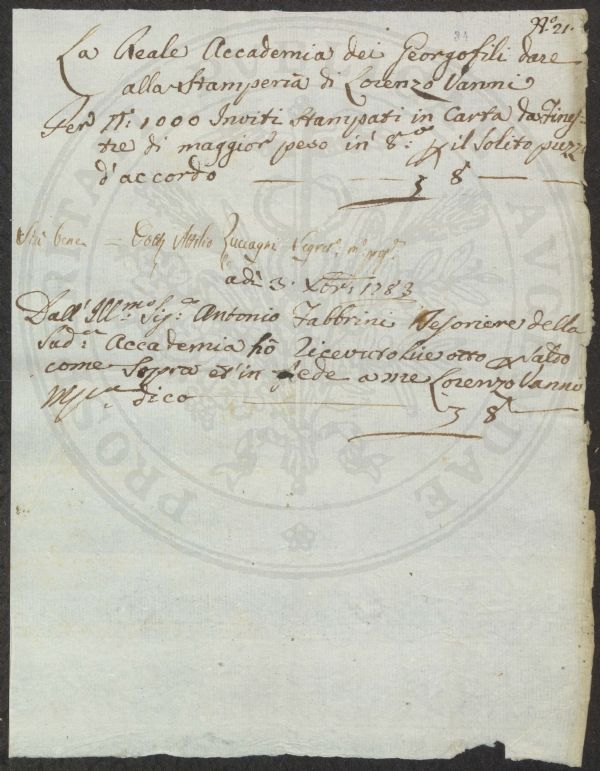 Nº. 21.
84
La Reale Accademia dei Georgofili dare
alla Stamperia di Lorenzo Vanni
Per N: 1000 Inviti Stampati in Carta da Fines-
tre di maggior peso in 8.º il Solito prezzo
d'accordo — — — 8 —
Stà bene = Dott. Attilio Zuccagni Segret.º
adì 3. Xbre 1783
Dall' Ill.mo Sig.re Antonio Fabbrini Tesoriere della
Sud.a Accademia hò Ricevuto Lire otto saldo
come Sopra et in fede a me Lorenzo Vanni
Mp.a dico — 8 —
PROSPERITATI AUGENDAE